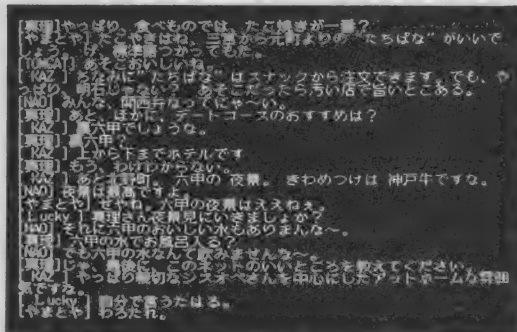 [真理]やっぱり、食べものでは、たこ焼きが一番?
[やまとや]たこやきはね、三宮から元町よりの “たちばな”がいいで
しょう。
[TOMCAT]あそこおいしいね。
[ KAZ ]ちなみに“たちばな”はスナックから注文できます。でも、や
っぱり、明石じゃない? あそこだったら汚い店で旨いとこある。
[NAO]みんな、関西弁なってにゃ~い。
[真理]あと、ほかに、デートコースのおすすめは?
[ KAZ ]裏六甲でしょうな。
[真理]裏六甲?
[ KAZ ]上から下までホテルです
[真理]もう、わけわからない。
[ KAZ ]あと 町、六甲の 夜景。 きわめつけは 神戸牛ですな。
[NAO]夜景は最高ですよ
[やまとや]せやね、六甲の夜景はええねぇ。
[ Lucky ]真理さん夜景見にいきましょか?
[NAO]それに六甲のおいしい水もありまんな~。
[真理]六甲の水でお風呂入る?
[NAO]でも六甲の水なんて飲みませんな~。
[真理]じゃ、最後に、このネットのいいところを教えてください。
[ KAZ ]やっぱり親切なシスオペさんを中心にしたアットホームな雰囲
気ですな。
[ Lucky ]自分で言うたはる。
[やまとや]わろたれ。